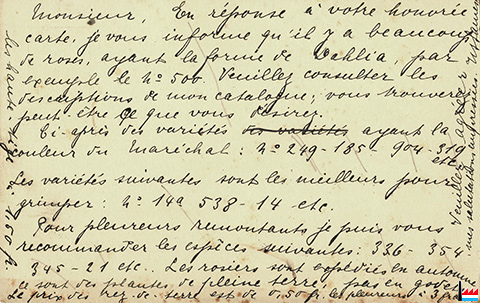 Monsieur, En réponse à votre honorée
carte, je vous informe qu'il y a beaucoup
de roses, ayant la forme de Dahlia, par
exemple le No 500. Veuillez consulter les
descriptions de mon catalogue, vous trouverez
peut être ce que vous désirez.
Ci après des variétés des variétés ayant la
couleur du Maréchal: No 249-185 904-319
etc.
Les variétés suivantes sont les meilleurs pour
grimper: No 149 538-14 etc.
Pour pleureurs remontants je puis vous
recommander les espèces suivantes: 336-354
345-21 etc.. Les rosiers sont expédiés en automne
ce sont des plantes de pleine terre, pas en
Le prix des rez de terre est de 0.50 fr. les pleureurs
les hautes tige 1.50 fr.
Veuillez agréer
mes salutations empressées